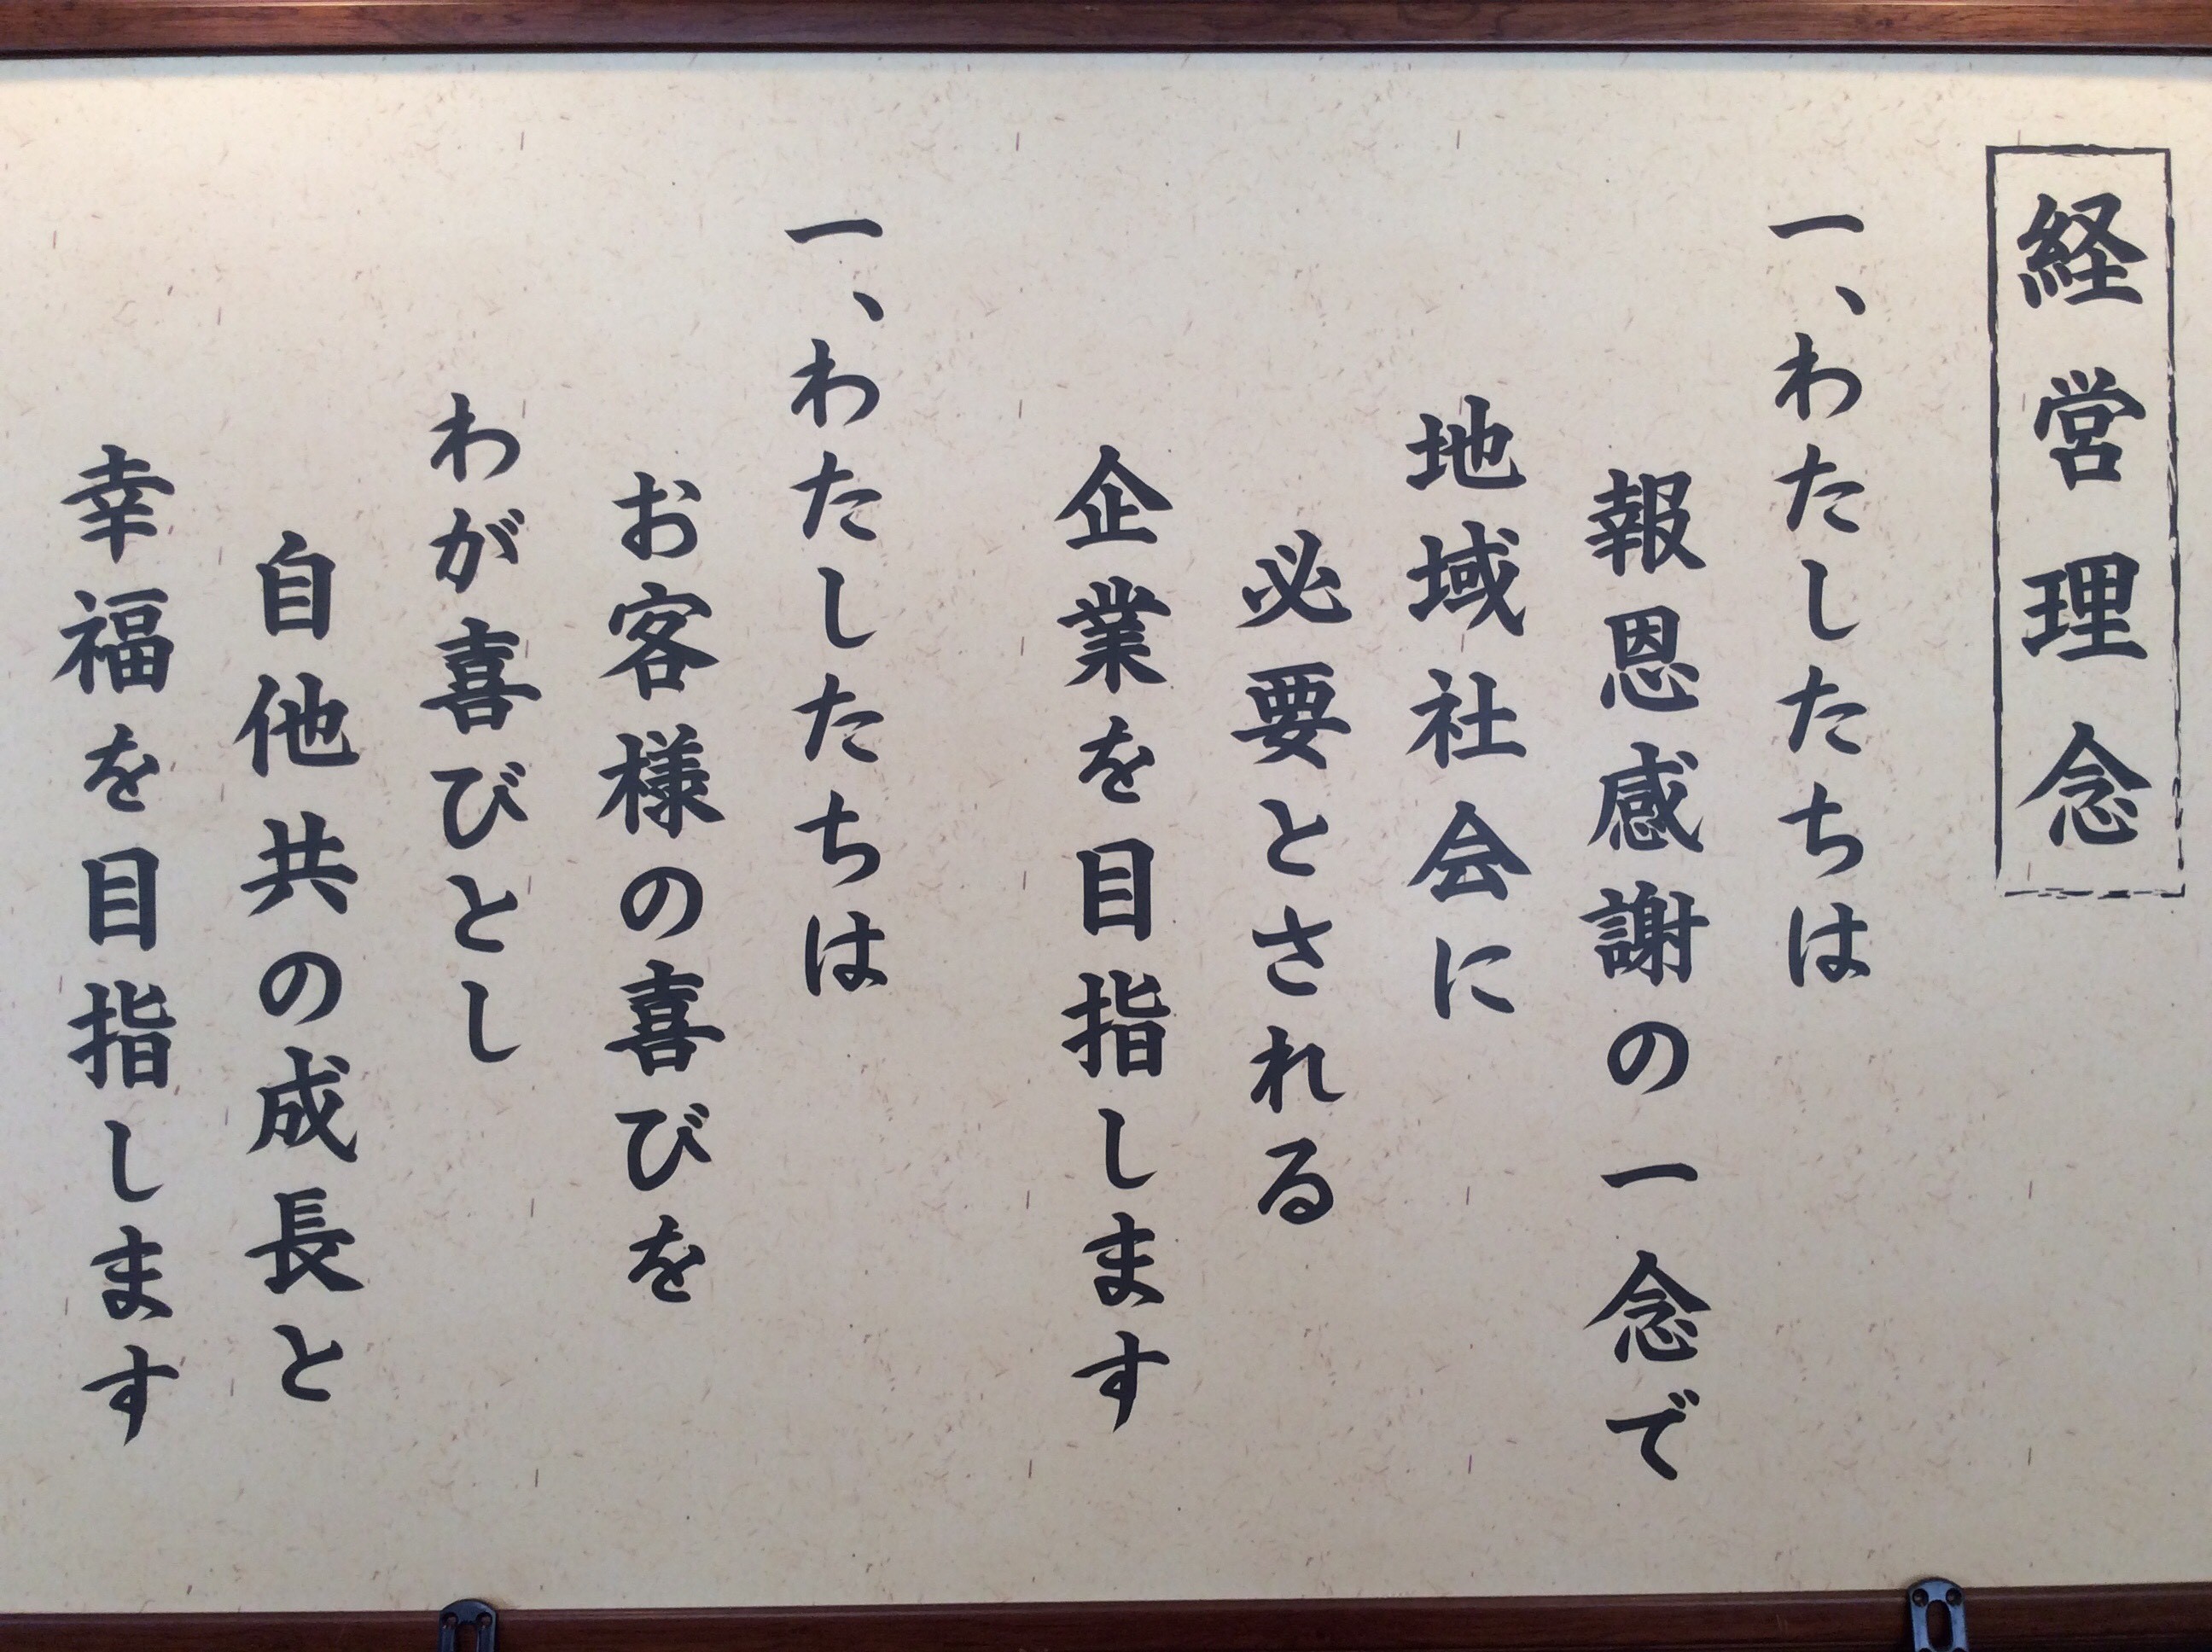 経営理念
一、わたしたちは
報恩感謝の一念で
地域社会に
必要とされる
企業を目指します
一、わたしたちは
お客様の喜びを
わが喜びとし
自他共の成長と
幸福を目指します